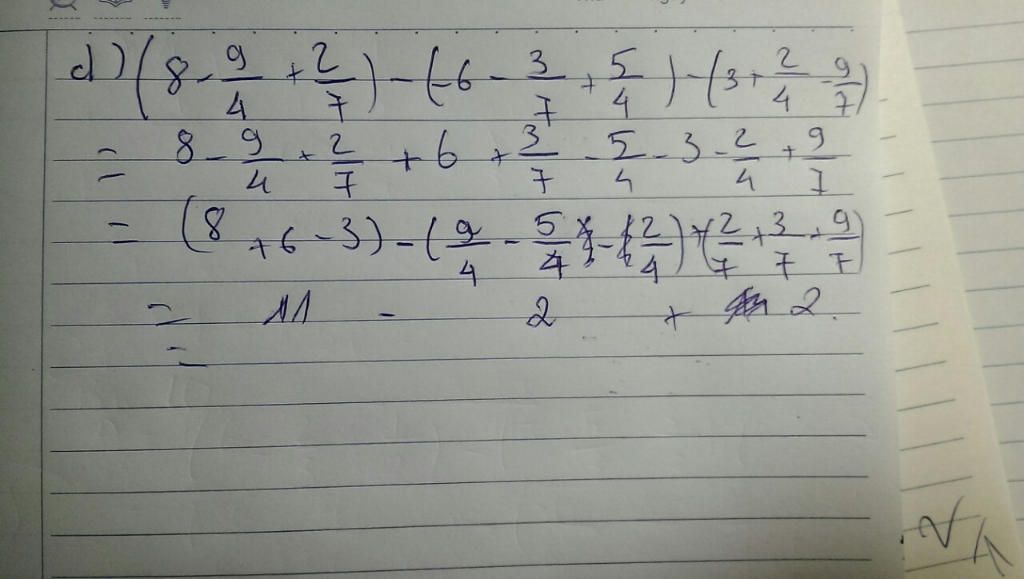 d) (8 - 9/4 + 2/7) - (-6 - 3/7 + 5/4) - (3 + 2/4 - 9/7)
= 8 - 9/4 + 2/7 + 6 + 3/7 - 5/4 - 3 - 2/4 + 9/7
= (8 + 6 - 3) - (9/4 - 5/4 - 2/4) + (2/7 + 3/7 + 9/7)
= 11 - 2 + 2.
=